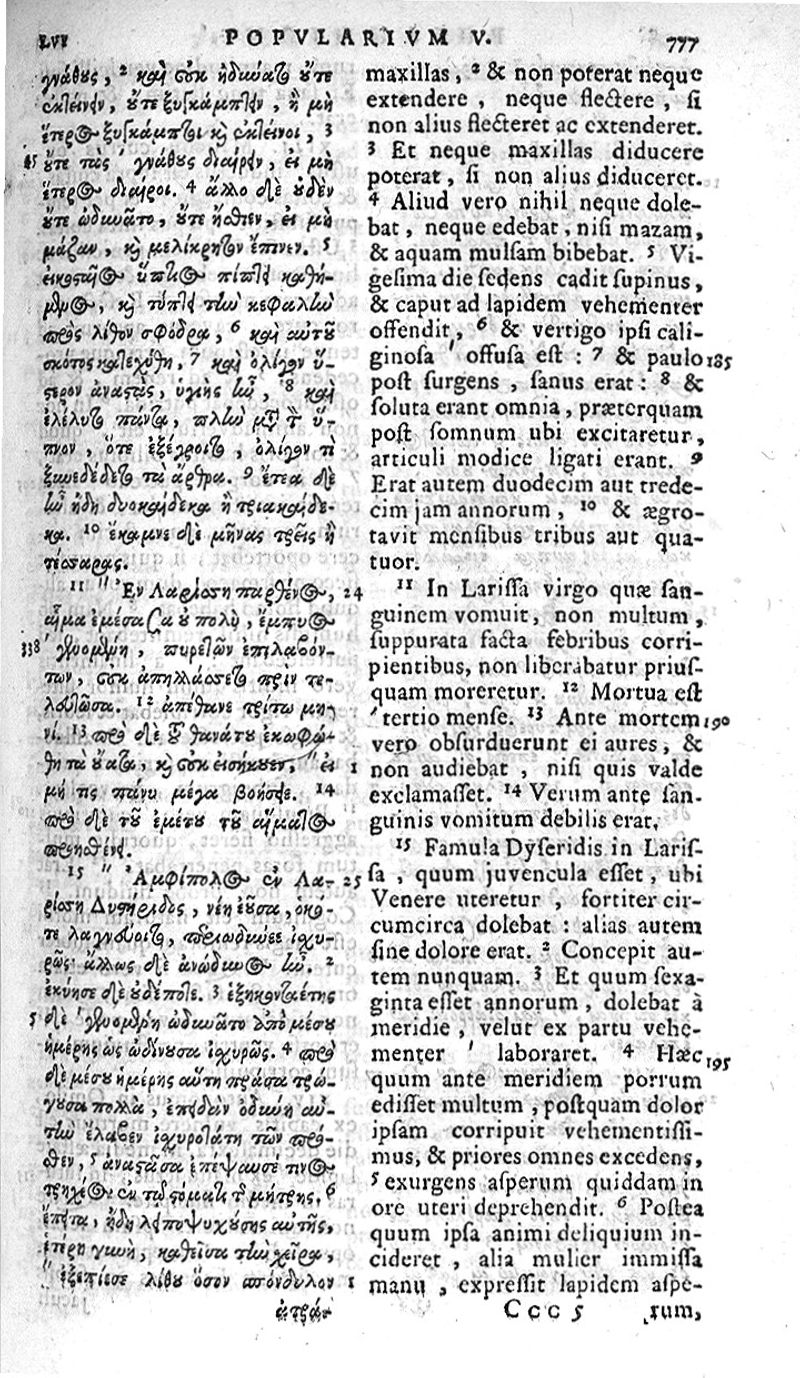 LVI POPVLARIVM V. 777
γνάθους, ² καὶ οὐκ ἠδύνατο οὔτε
ἐκτείνειν, οὔτε ξυγκάμπτειν, ἢν μὴ
ἕτερος ξυγκάμπτοι καὶ ἐκτείνοι, ³
45 οὔτε τὰς ' γνάθους διαίρειν, εἰ μὴ
ἕτερος διαίροι. ⁴ ἄλλο δὲ οὐδὲν
οὔτε ὠδυνᾶτο, οὔτε ἤσθιεν, εἰ μὴ
μάζαν, καὶ μελίκρητον ἔπινεν. ⁵
εἰκοσταῖος ὕπτιος πίπτει καθή-
μενος, καὶ τύπτει τὴν κεφαλὴν
πρὸς λίθον σφόδρα, ⁶ καὶ αὐτοῦ
σκότος κατεχύθη, ⁷ καὶ ὀλίγον ὕ-
στερον ἀναστὰς, ὑγιὴς ἦν, ⁸ καὶ
ἐλέλυτο πάντα, πλὴν μετὰ τὸν ὕ-
πνον, ὅτε ἐξέγροιτο, ὀλίγον τὶ
ξυνεδέδετο τὰ ἄρθρα. ⁹ ἔτεα δὲ
ἦν ἤδη δυοκαίδεκα ἢ τριακαίδε-
κα. ¹⁰ ἔκαμνε δὲ μῆνας τρεῖς ἢ
τέσσαρας.
¹¹ " Ἐν Λαρίσσῃ παρθένος, 24
αἷμα ἐμέσασα οὐ πολὺ, ἔμπυος
338 ' γενομένη, πυρετῶν ἐπιλαβόν-
των, οὐκ ἀπηλλάσσετο πρὶν τε-
λευτῶσα. ¹² ἀπέθανε τρίτῳ μη-
νί. ¹³ πρὸ δὲ τοῦ θανάτου ἐκωφώ-
θη τὰ οὔατα, καὶ οὐκ εἰσήκουεν, " εἰ 1
μή τις πάνυ μέγα βοήσειε. ¹⁴
πρὸ δὲ τοῦ ἐμέτου τοῦ αἵματος
¹⁵ " Ἀμφίπολος ἐν Λα- 25
ρίσσῃ Δυσήριδος, νέη ἐοῦσα, ὁκό-
τε λαγνεύοιτο, περιωδύνεε ἰσχυ-
ρῶς· ἄλλως δὲ ἀνώδυνος ἦν. ²
ἐκύησε δὲ οὐδέποτε. ³ ἑξηκονταέτης
5 δὲ ' γενομένη ὠδυνᾶτο ἀπὸ μέσου
ἡμέρης ὡς ὠδίνουσα ἰσχυρῶς. ⁴ πρὸ
δὲ μέσου ἡμέρης αὕτη πράσα τρώ-
γουσα πολλὰ, ἐπειδὰν ὀδύνη αὐ-
τὴν ἔλαβεν ἰσχυροτάτη τῶν πρό-
σθεν, ⁵ ἀναστᾶσα ἐπέψαυσέ τινος
τρηχέος ἐν τῷ στόματι τῆς μήτρης. ⁶
ἔπειτα, ἤδη λειποψυχούσης αὐτῆς,
ἑτέρη γυνὴ, καθεῖσα τὴν χεῖρα,
" ἐξεπίεσε λίθον ὅσον σπόνδυλον 1
ἀτρά-
maxillas, ² & non poterat neque
extendere, neque flectere, si
non alius flecteret ac extenderet.
³ Et neque maxillas diducere
poterat, si non alius diduceret.
⁴ Aliud vero nihil neque dole-
bat, neque edebat, nisi mazam,
& aquam mulsam bibebat. ⁵ Vi-
gesima die sedens cadit supinus,
& caput ad lapidem vehementer
offendit, ⁶ & vertigo ipsi cali-
ginosa ' offusa est : ⁷ & paulo 185
post surgens, sanus erat : ⁸ &
soluta erant omnia, præterquam
post somnum ubi excitaretur,
articuli modice ligati erant. ⁹
Erat autem duodecim aut trede-
cim jam annorum, ¹⁰ & ægro-
tavit mensibus tribus aut qua-
tuor.
¹¹ In Larissa virgo quæ san-
guinem vomuit, non multum,
suppurata facta febribus corri-
pientibus, non liberabatur prius-
quam moreretur. ¹² Mortua est
' tertio mense. ¹³ Ante mortem 190
vero obsurduerunt ei aures, &
non audiebat, nisi quis valde
exclamasset. ¹⁴ Verum ante san-
guinis vomitum debilis erat.
¹⁵ Famula Dyseridis in Laris-
sa, quum juvencula esset, ubi
Venere uteretur, fortiter cir-
cumcirca dolebat : alias autem
sine dolore erat. ² Concepit au-
tem nunquam. ³ Et quum sexa-
ginta esset annorum, dolebat à
meridie, velut ex partu vehe-
menter ' laboraret. ⁴ Hæc 195
quum ante meridiem porrum
edisset multum, postquam dolor
ipsam corripuit vehementissi-
mus, & priores omnes excedens,
⁵ exurgens asperum quiddam in
ore uteri deprehendit. ⁶ Postea
quum ipsa animi deliquium in-
cideret, alia mulier immissa
manu, expressit lapidem aspe-
Ccc 5 rum,